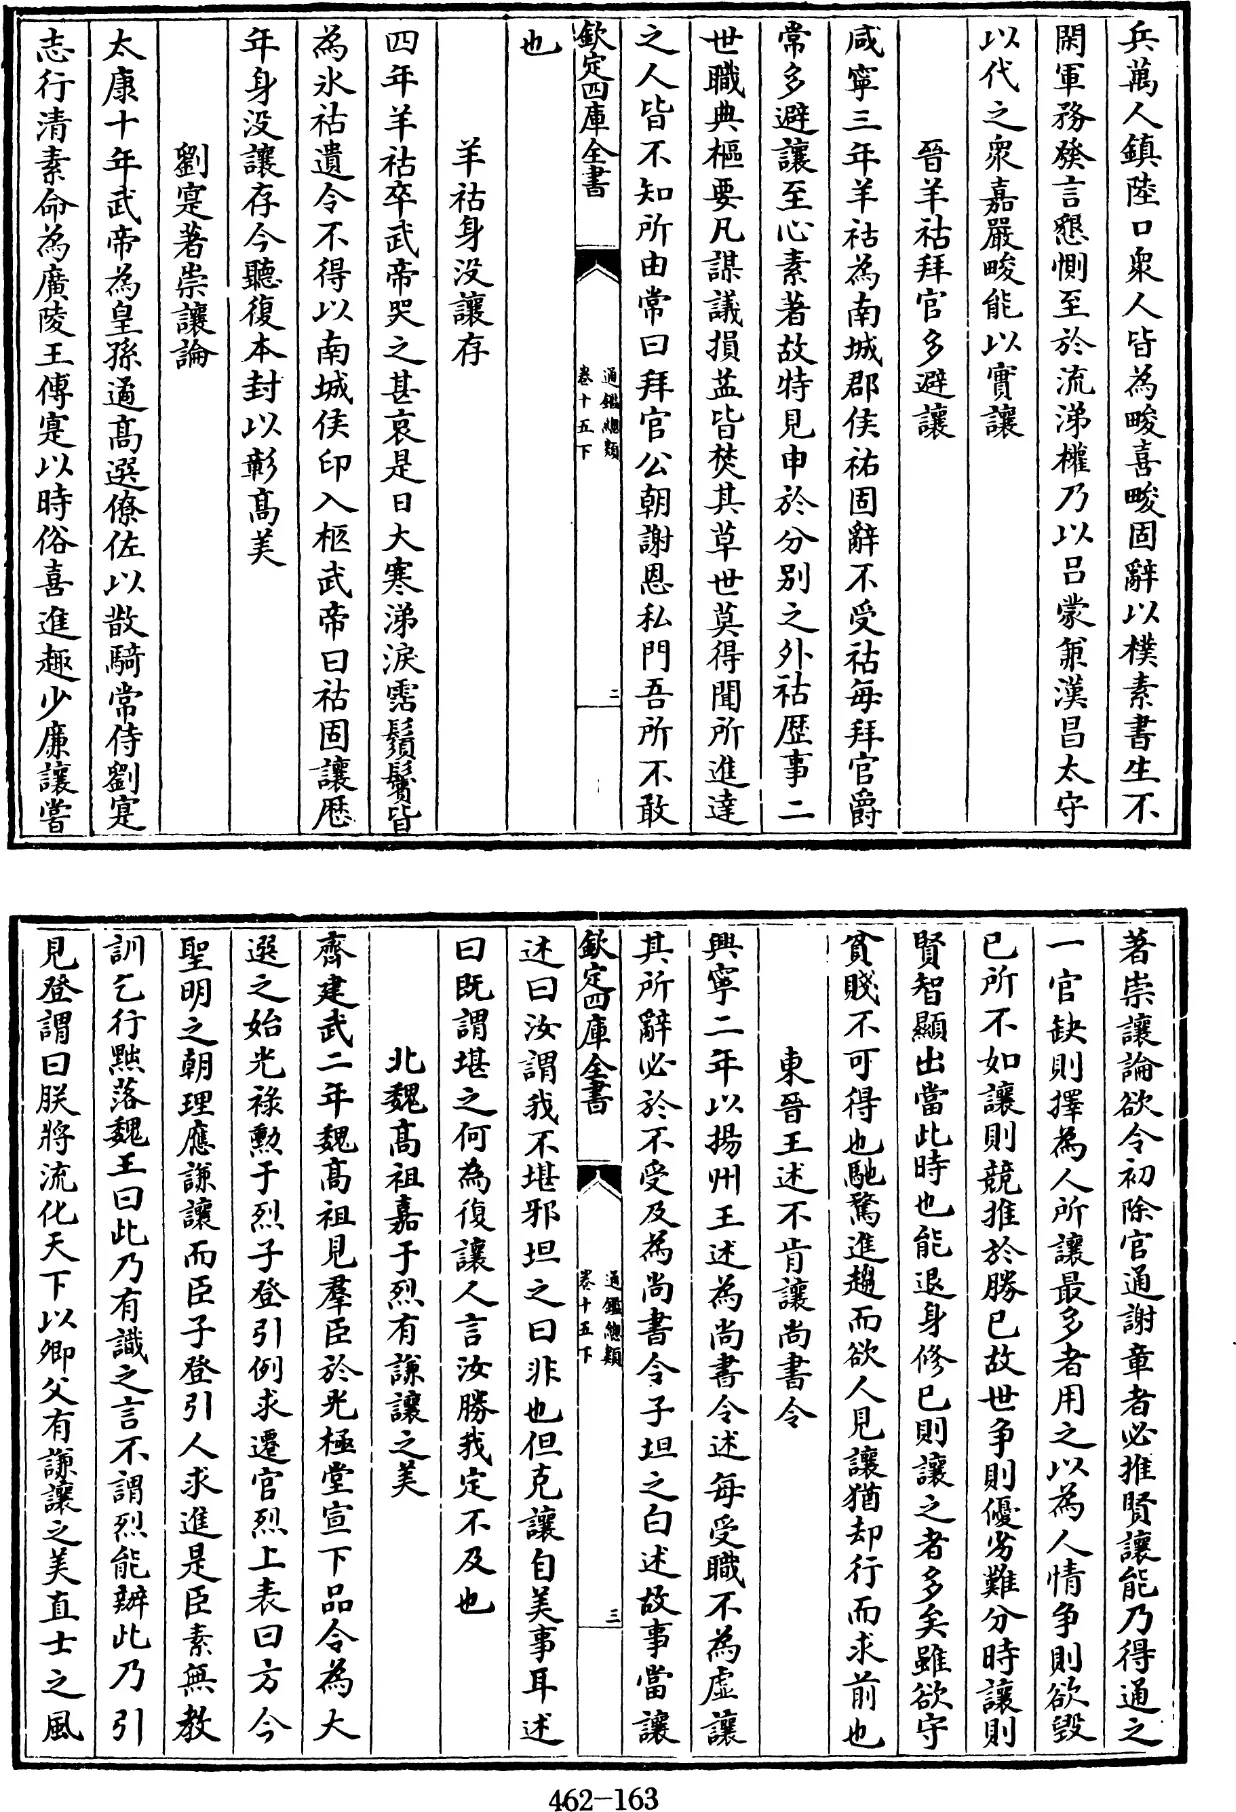 兵萬人鎮陸口衆人皆為畯喜畯固辭以樸素書生不
閑軍務發言懇惻至於流涕權乃以吕蒙兼漢昌太守
以代之衆嘉嚴畯能以實讓
晉羊祜拜官多避讓
咸寧三年羊祜為南城郡侯祜固辭不受祜每拜官爵
常多避讓至心素著故特見申於分别之外祜歴事二
世職典樞要凡謀議損益皆焚其草世莫得聞所進達
之人皆不知所由常曰拜官公朝謝恩私門吾所不敢
欽定四庫全書
通鑑總類
卷十五下
二
也
羊祜身没讓存
四年羊祜卒武帝哭之甚哀是日大寒涕淚霑鬚鬢皆
為氷祜遺令不得以南城侯印入柩武帝曰祜固讓歴
年身没讓存今聽復本封以彰髙美
劉寔著崇讓論
太康十年武帝為皇孫遹髙選僚佐以散騎常侍劉寔
志行清素命為廣陵王傅寔以時俗喜進趣少廉讓嘗
著崇讓論欲令初除官通謝章者必推賢讓能乃得通之
一官缺則擇為人所讓最多者用之以為人情争則欲毁
已所不如讓則競推於勝已故世争則優劣難分時讓則
賢智顯出當此時也能退身修已則讓之者多矣雖欲守
貧賤不可得也馳騖進趨而欲人見讓猶却行而求前也
東晉王述不肯讓尚書令
興寧二年以揚州王述為尚書令述每受職不為虚讓
其所辭必於不受及為尚書令子坦之白述故事當讓
欽定四庫全書
通鑑總類
卷十五下
三
述曰汝謂我不堪邪坦之曰非也但克讓自美事耳述
曰既謂堪之何為復讓人言汝勝我定不及也
北魏髙祖嘉于烈有謙讓之美
齊建武二年魏髙祖見羣臣於光極堂宣下品令為大
選之始光禄勲于烈子登引例求遷官烈上表曰方今
聖明之朝理應謙讓而臣子登引人求進是臣素無教
訓乞行黜落魏王曰此乃有識之言不謂烈能辨此乃引
見登謂曰朕將流化天下以卿父有謙讓之美直士之風
462-163